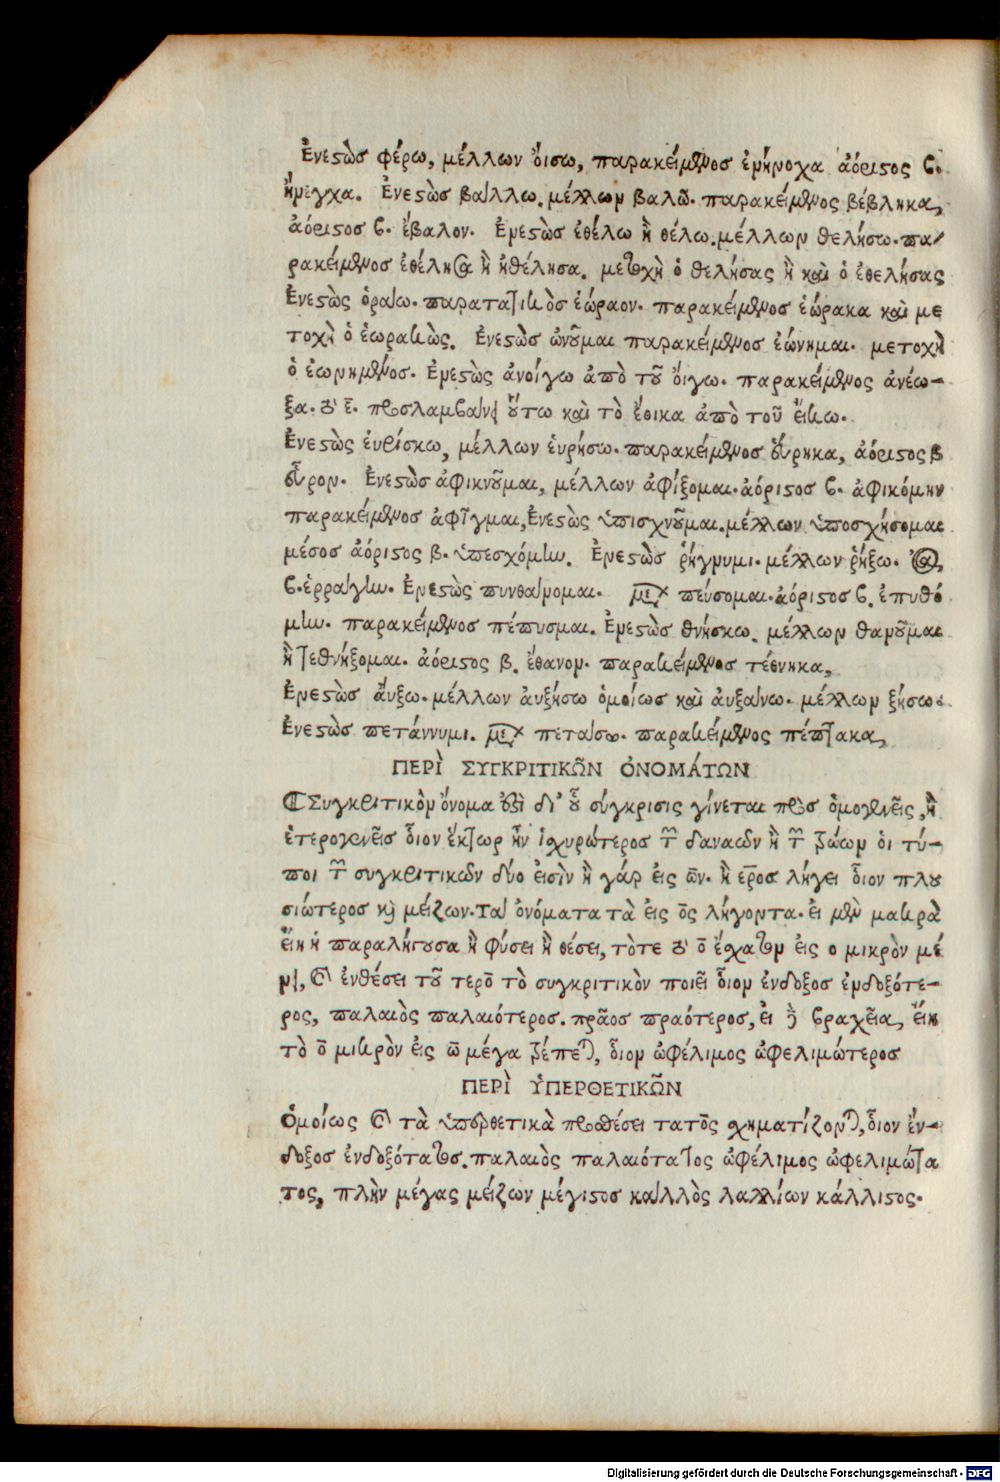 Ἐνεϛὼσ φέρω, μέλλων ὄισω, παρακείμενοσ ἐνήνοχα ἀόριϛος β.
ἤνεγχα. Ἐνεϛὼσ βάλλω. μέλλων βαλῶ. παρακείμενος βέβληκα,
ἀόριϛοσ β. ἔβαλον. Ἐνεϛὼσ ἐθέλω ἢ θέλω. μέλλων θελήσω. πα/
ρακείμενοσ ἐθέλησα ἢ ἠθέλησα. μετοχὴ ὁ θελήσας ἢ καὶ ὁ ἐθελήσας
Ἐνεϛὼς ὁράω. παρατατικὸσ ἑώραον. παρακείμενοσ ἑώρακα καὶ με
τοχὴ ὁ ἑωρακὼς. Ἐνεϛὼσ ὠνοῦμαι παρακείμενοσ ἐώνημαι. μετοχὴ
ὁ ἐωνημένοσ. Ἐνεϛὼς ἀνοίγω ἀπὸ τοῦ ὄιγω. παρακείμενος ἀνέω-
ξα. προσλαμβάνει οὕτω καὶ τὸ ἔοικα ἀπὸ τοῦ ἔικω.
Ἐνεϛὼς ἑυρίσκω, μέλλων ἑυρήσω. παρακείμενοσ εὕρηκα, ἀόριϛος β
εὗρον. Ἐνεϛὼσ ἀφικνοῦμαι, μέλλων ἀφίξομαι. ἀόριϛοσ β. ἀφικόμην
παρακείμενοσ ἀφῖγμαι, Ἐνεϛὼς ὑπισχνοῦμαι. μέλλων ὑποσχήσομαι
μέσος ἀόριϛος β. ὑπεσχόμην. Ἐνεϛὼσ ῥήγνυμι. μέλλων ῥήξω.
β. ἐρράγην. Ἐνεϛὼς πυνθάνομαι. πεύσομαι. ἀόριϛοσ β. ἐπυθό
μην. παρακείμενοσ πέπυσμαι. Ἐνεϛὼσ θνήσκω. μέλλων θανοῦμαι
ἢ τεθνήξομαι. ἀόριϛος β. ἔθανον. παρακείμενοσ τέθνηκα,
Ἐνεϛὼσ ἄυξω. μέλλων ἀυξήσω ὁμοίωσ καὶ ἀυξάνω. μέλλων ξήσω.
Ἐνεϛὼσ πετάννυμι. πετάσω. παρακείμενος πέπτακα,
ΠΕΡῚ ΣΥΓΚΡΙΤΙΚΩ͂Ν ὈΝΟΜΆΤΩΝ
Συγκριτικὸν ὄνομα ἐϛὶ δι' οὗ σύγκρισις γίνεται πρὸσ ὁμογενεῖς, ἢ
ἑτερογενεῖσ ὅιον ἕκτωρ ἦν ἰχυρώτεροσ τῶν δαναῶν ἢ τῶν ζώων ὁι τύ-
ποι τῶν συγκριτικῶν δύο ἐισὶν ἢ γάρ ἐις ων. ἢ εροσ λήγει ὅιον πλου
σιώτεροσ καὶ μείζων. Τὰ ὀνόματα τὰ ἐις ος λήγοντα. ἐι μὲν μακρὰ
ἔιη ἡ παραλήγουσα ἢ φύσει ἢ θέσει, τότε τὸ ο ἔχατον ἐις ο μικρὸν μέ
νει, καὶ ἐνθέσει τοῦ τερο τὸ συγκριτικὸν ποιεῖ ὅιον ἔνδοξοσ ἐνδοξότε-
ρος, παλαιὸς παλαιότεροσ. πρᾶοσ πραότεροσ, ἐι δὲ βραχεῖα, ἔιη
τὸ ο μικρὸν ἐις ω μέγα τρέπεται, ὅιον ὠφέλιμος ὠφελιμώτεροσ
ΠΕΡῚ ὙΠΕΡΘΕΤΙΚΩ͂Ν
Ὁμοίως καὶ τὰ ὑπερθετικὰ προσθέσει τατος χηματίζονται, ὅιον ἔν-
δοξοσ ἐνδοξότατοσ. παλαιὸς παλαιότατος ὠφέλιμος ὠφελιμώτα
τος, πλὴν μέγας μείζων μέγιϛοσ καλλὸς λαλλίων κάλλιϛος.
Digitalisierung gefördert durch die Deutsche Forschungsgemeinschaft - DFG